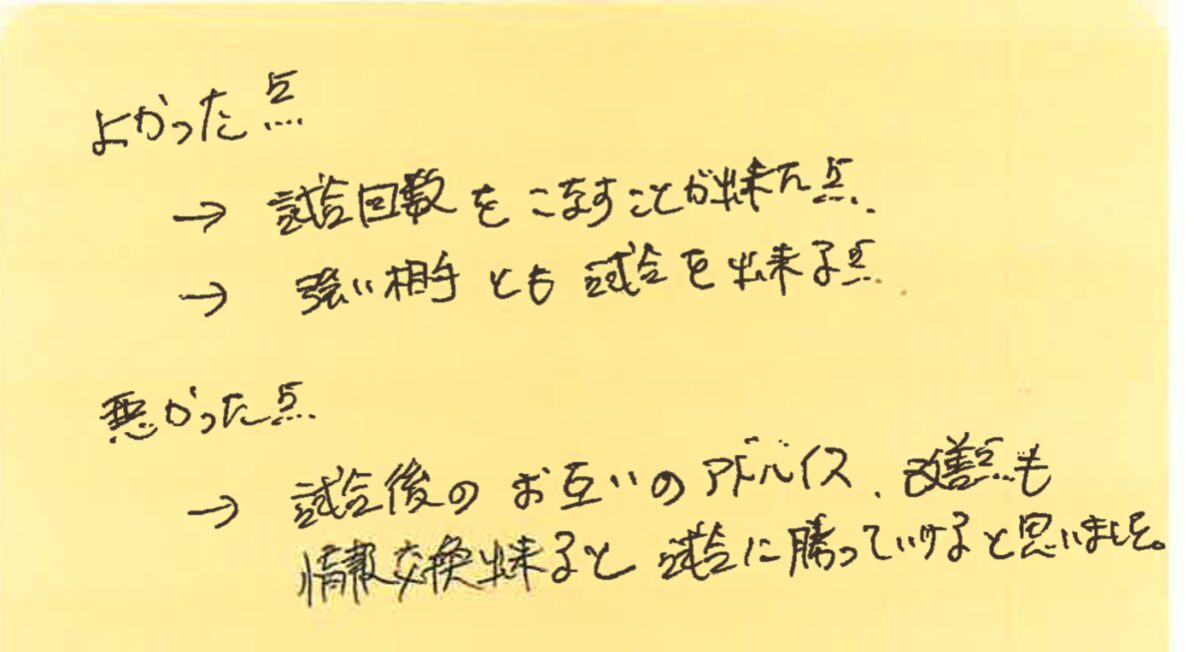 よかった点
→ 試合回数をこなすことが出来た点.
→ 強い相手とも試合を出来る点.
悪かった点.
→ 試合後のお互いのアドバイス、改善点も
情報交換出来ると試合に勝っていけると思いました。